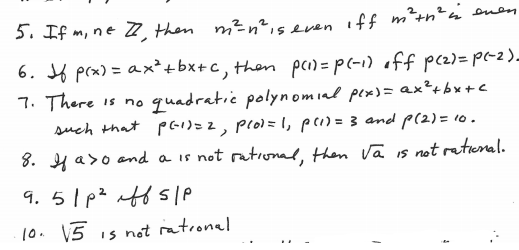 5. If m, n ∈ ℤ, then m²-n² is even iff m²+n² is even
6. If p(x) = ax²+bx+c, then p(1) = p(-1) iff p(2) = p(-2).
7. There is no quadratic polynomial p(x) = ax²+bx+c
such that p(-1) = 2, p(0) = 1, p(1) = 3 and p(2) = 10.
8. If a>0 and a is not rational, then √a is not rational.
9. 5 | p² iff 5 | p
10. √5 is not rational